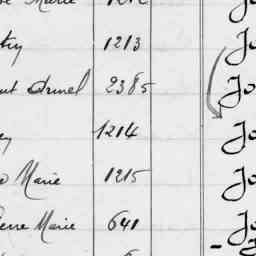 Marie 1212
try 1213 Jo
nt Armel 2385 Jo
ey 1214 Jo
Marie 1215 Jo
erre Marie 641 Jo